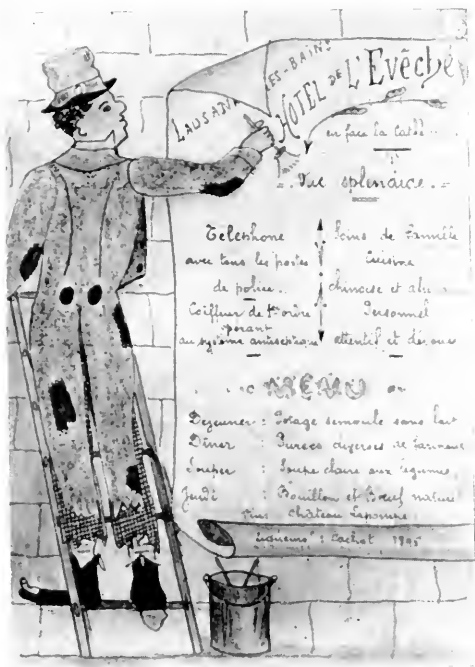 LAUSANNE LES-BAINS
HOTEL DE L'Evêché
en face la
Vue splendide
Téléphone
avec tous les postes
de police
Coiffeur de 1er ordre
opérant
au système antiseptique
Soins de Famille
Cuisine
chinoise et
Personnel
attentif et dévoué
MENU
Dejeuner : Potage semoule sans lait
Dîner : Purées diverses de farineux
Souper : Soupe claire aux légumes
Jeudi : Bouillon et Bœuf nature
Vins Château Lapompe
Cachot 1905